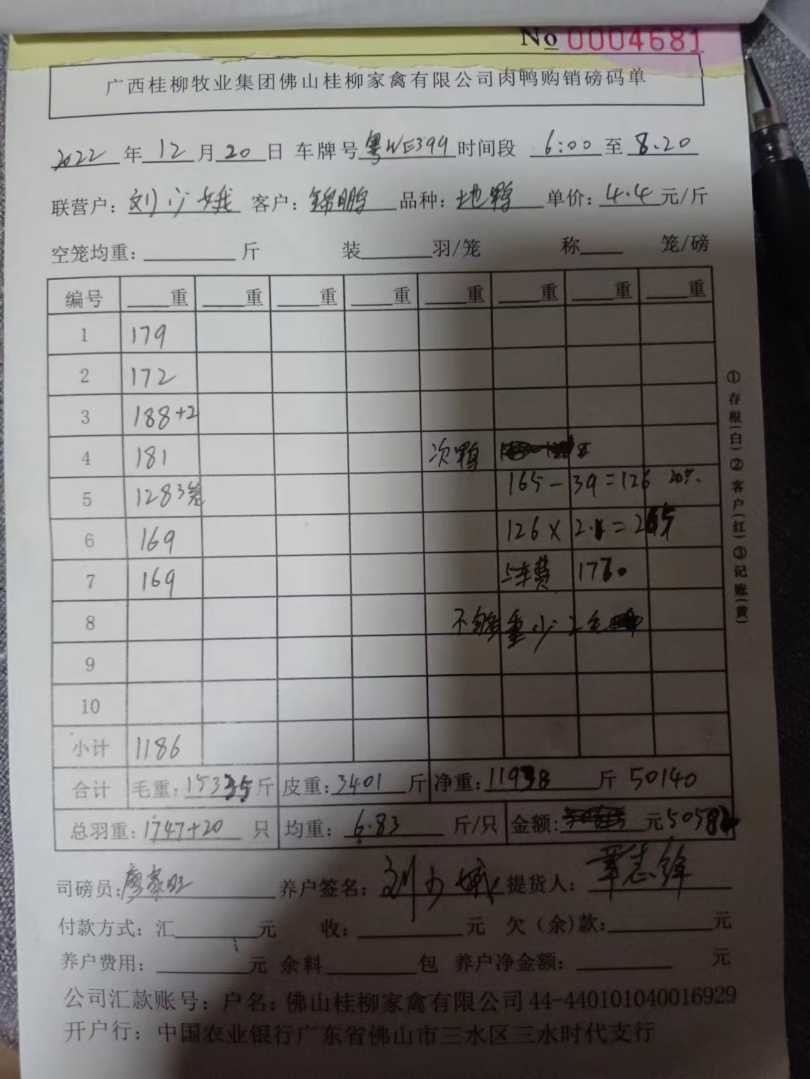 No 0004681
广西桂柳牧业集团佛山桂柳家禽有限公司肉鸭购销磅码单
2022 年 12 月 20 日 车牌号 粤WE399 时间段 6:00 至 8.20
联营户: 刘少娥 客户: 锦鹏 品种: 地鸭 单价: 4.4 元/斤
空笼均重: 斤 装 羽/笼 称 笼/磅
编号 重 重 重 重 重 重 重 重
1 179
2 172
3 188+2
4 181 次鸭
5 128 3笼 165-39=126
6 169 126×2.1=265
7 169 车费
8 不够重少
9
10
小计 1186
合计 毛重: 15335 斤 皮重: 3401 斤 净重: 11938 斤 50140
总羽重: 1747+20 只 均重: 6.83 斤/只 金额: 元
司磅员: 养户签名: 刘少娥 提货人: 覃志锋
付款方式: 汇 元 收: 元 欠(余)款: 元
养户费用: 元 余料 包 养户净金额: 元
公司汇款账号: 户名: 佛山桂柳家禽有限公司 44-440101040016929
开户行: 中国农业银行广东省佛山市三水区三水时代支行
①存根(白)②客户(红)③记账(黄)